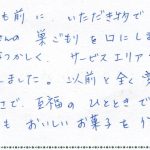 も前に いただき物で
さんの 巣ごもり を口にしま
なつかしく、サービスエリア
しました。以前と全く変
さで、至福の ひとときで
も おいしい お菓子を